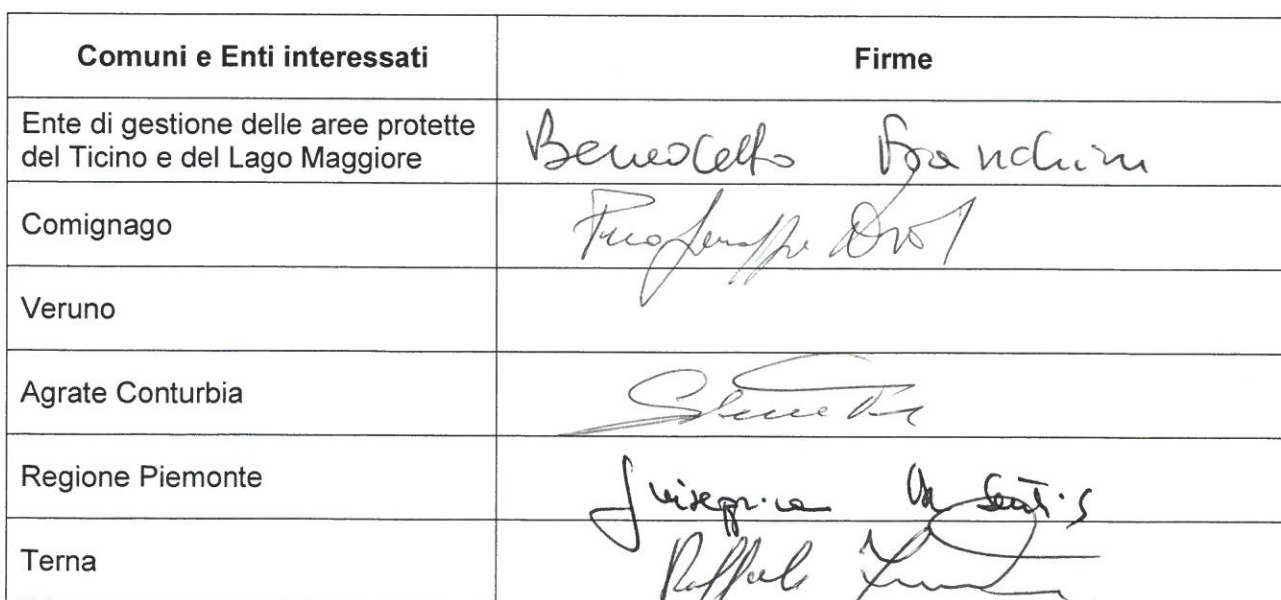 Comuni e Enti interessati Firme
Ente di gestione delle aree protette
del Ticino e del Lago Maggiore
Benedetto Franchini
Comignago
Veruno
Agrate Conturbia
Regione Piemonte
Terna Raffaele